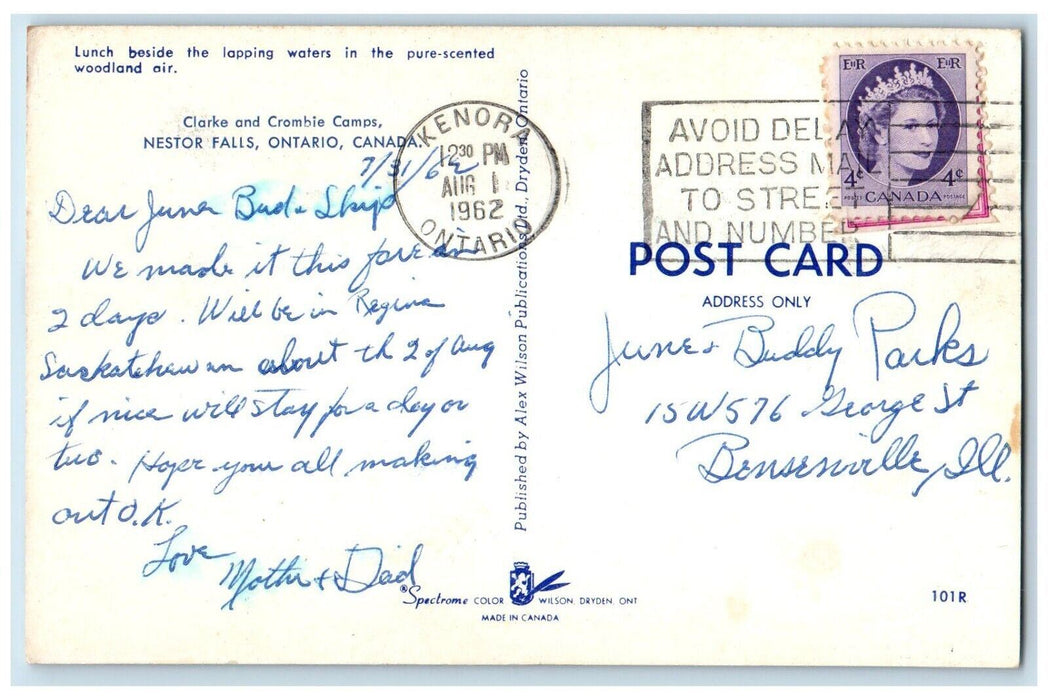 Lunch beside the lapping waters in the pure-scented
woodland air.
Clarke and Crombie Camps,
NESTOR FALLS, ONTARIO, CANADA.
7/31/62
Dear June Bud & Skip
We made it this far in
2 days. Will be in Regina
Saskatchewan about th 2 of Aug
if nice will stay for a day or
two. Hope your all making
out O.K.
Love
Mother & Dad
KENORA
12 30 PM
AUG 1
1962
ONTARIO
Published by Alex Wilson Publications Ltd., Dryden, Ontario
AVOID DELAY
ADDRESS MAIL
TO STREET
AND NUMBER
E II R E II R
4¢ 4¢
POSTES CANADA POSTAGE
POST CARD
ADDRESS ONLY
June & Buddy Parks
15W576 George St
Bensenville, Ill.
Spectrome COLOR WILSON, DRYDEN, ONT
MADE IN CANADA
101R